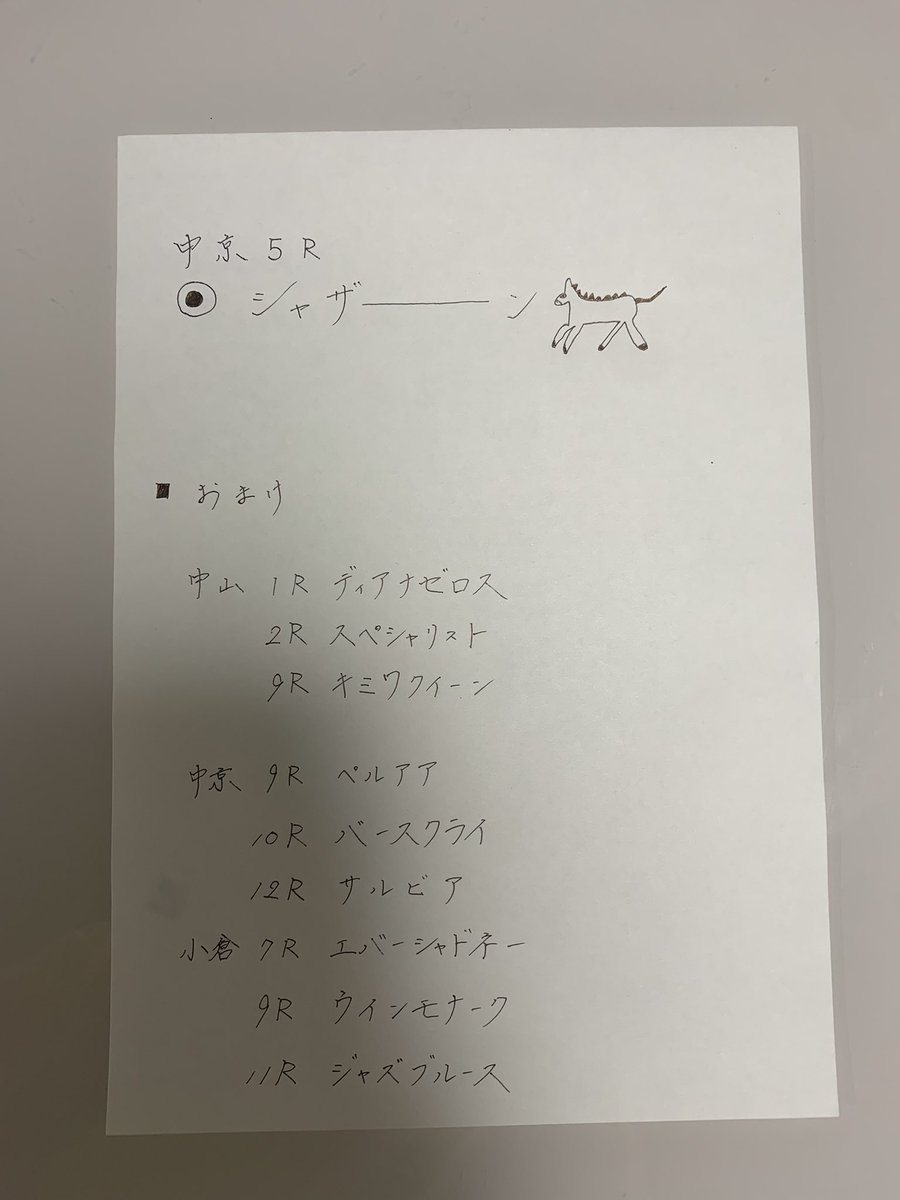 中京 5R
◎ シャザーーン
■ おまけ
中山 1R ディアナゼロス
2R スペシャリスト
9R キミワクイーン
中京 9R ペルアア
10R バースクライ
12R サルビア
小倉 7R エバーシャドネー
9R ウインモナーク
11R ジャズブルース